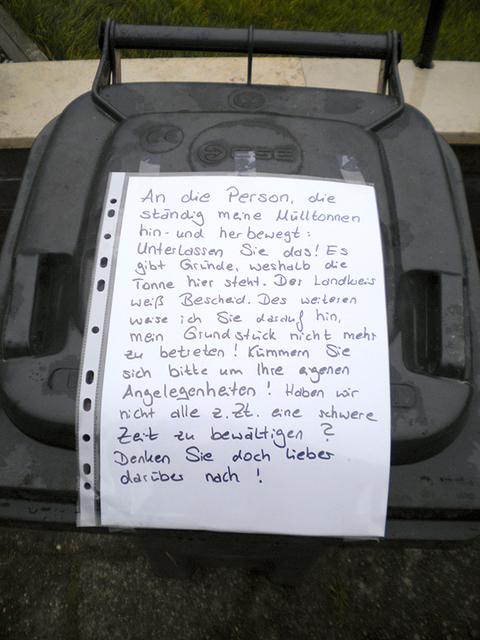 ESE
An die Person, die
ständig meine Mülltonnen
hin- und herbewegt:
Unterlassen Sie das! Es
gibt Gründe, weshalb die
Tonne hier steht. Der Landkreis
weiß Bescheid. Des weiteren
weise ich Sie darauf hin,
mein Grundstück nicht mehr
zu betreten! Kümmern Sie
sich bitte um Ihre eigenen
Angelegenheiten! Haben wir
nicht alle z.Zt. eine schwere
Zeit zu bewältigen?
Denken Sie doch lieber
darüber nach!